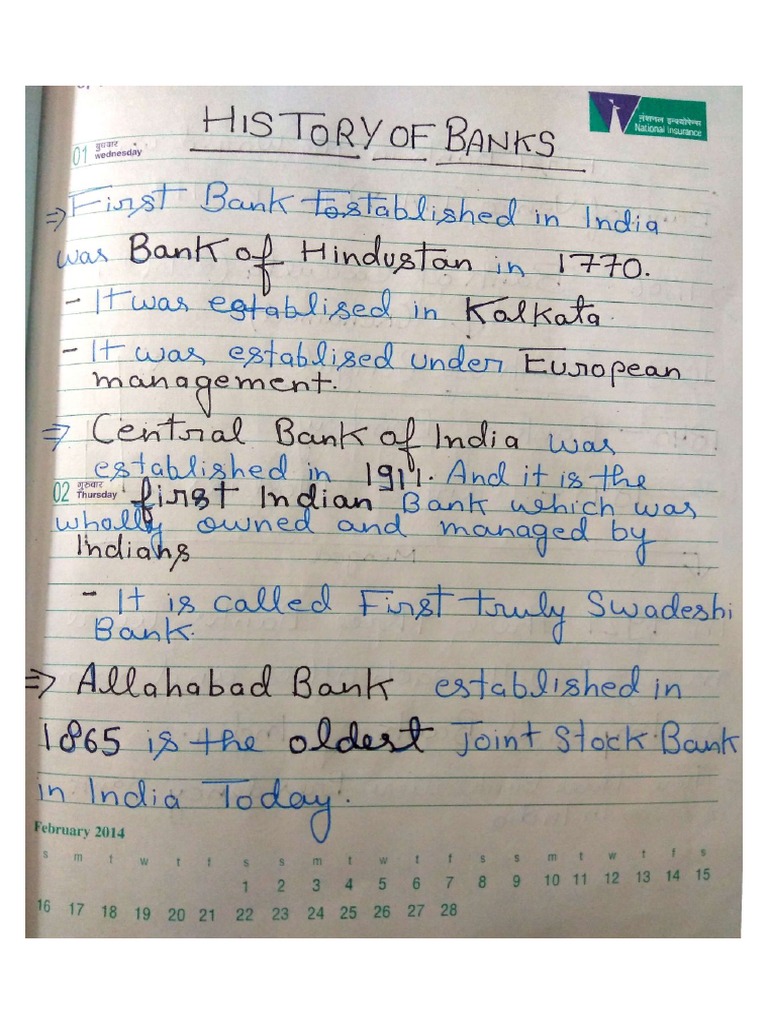 HISTORY OF BANKS
नेशनल इन्श्योरेन्स
National Insurance
01 बुधवार
wednesday
⇒ First Bank Established in India
was Bank of Hindustan in 1770.
- It was establised in Kolkata
- It was establised under European
management.
⇒ Central Bank of India was
established in 1911. And it is the
02 गुरुवार
Thursday
first Indian Bank which was
wholly owned and managed by
Indians
- It is called First truly Swadeshi
Bank.
⇒ Allahabad Bank established in
1865 is the oldest Joint Stock Bank
in India Today.
February 2014
s m t w t f s s m t w t f s s m t w t f s
1 2 3 4 5 6 7 8 9 10 11 12 13 14 15
16 17 18 19 20 21 22 23 24 25 26 27 28